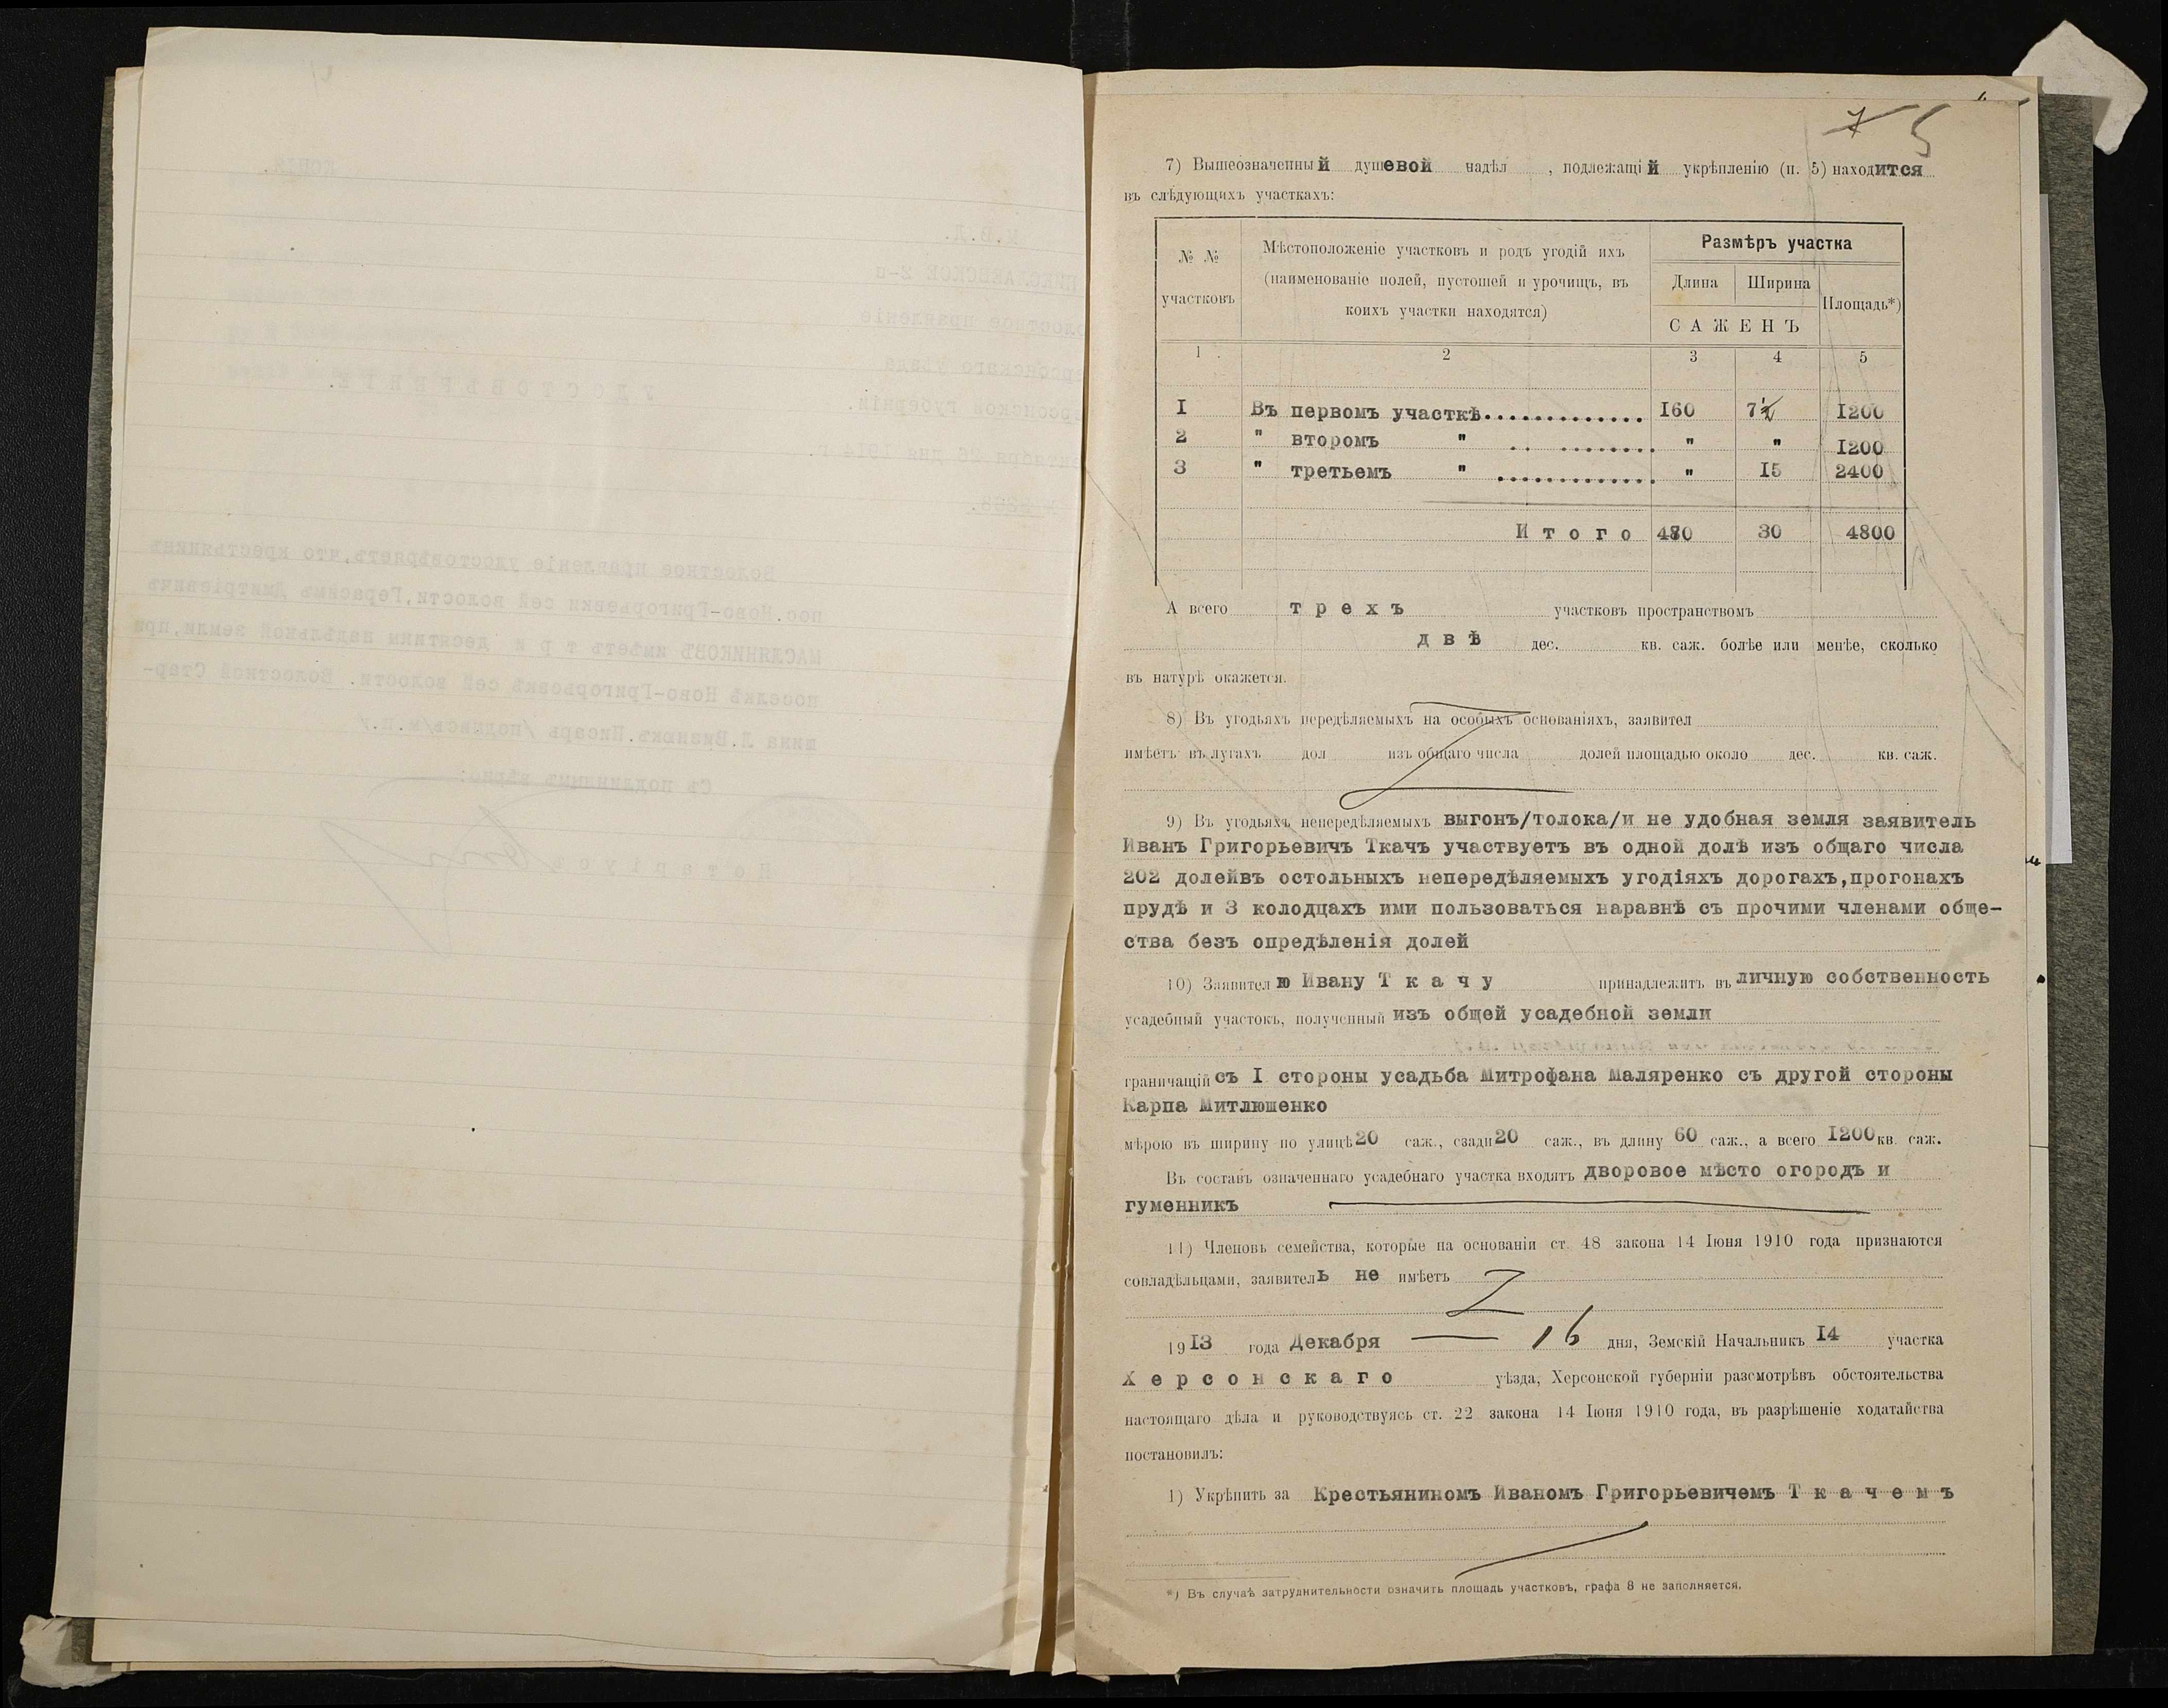 7 5
7) Вышеозначенный душевой надѣл , подлежащій укрѣпленію (п. 5) находится
въ слѣдующихъ участкахъ:
№ № участковъ
Мѣстоположеніе участковъ и родъ угодій ихъ
(наименованіе полей, пустошей и урочищъ, въ
коихъ участки находятся)
Размѣръ участка
Длина Ширина Площадь*)
САЖЕНЪ
1 2 3 4 5
I Въ первомъ участкѣ.............. 160 7½ 1200
2 " второмъ " .. ........ " " 1200
3 " третьемъ " ............. " 15 2400
Итого 480 30 4800
А всего трехъ участковъ пространствомъ
двѣ дес. кв. саж. болѣе или менѣе, сколько
въ натурѣ окажется.
8) Въ угодьяхъ передѣляемыхъ на особыхъ основаніяхъ, заявител
имѣетъ въ лугахъ дол изъ общаго числа долей площадью около дес. кв. саж.
9) Въ угодьяхъ непередѣляемыхъ выгонъ/толока/и не удобная земля заявитель
Иванъ Григорьевичъ Ткачъ участвуетъ въ одной долѣ изъ общаго числа
202 долейвъ остольныхъ непередѣляемыхъ угодіяхъ дорогахъ,прогонахъ
прудѣ и 3 колодцахъ ими пользоваться наравнѣ съ прочими членами обще-
ства безъ опредѣленія долей
10) Заявителю Ивану Ткачу принадлежитъ въ личную собственность
усадебный участокъ, полученный изъ общей усадебной земли
граничащій съ I стороны усадьба Митрофана Маляренко съ другой стороны
Карпа Митлюшенко
мѣрою въ ширину по улицѣ 20 саж., сзади 20 саж., въ длину 60 саж., а всего 1200 кв. саж.
Въ составъ означеннаго усадебнаго участка входятъ дворовое мѣсто огородъ и
гуменникъ
11) Членовъ семейства, которые на основаніи ст. 48 закона 14 Іюня 1910 года признаются
совладѣльцами, заявитель не имѣетъ
1913 года Декабря — 16 дня, Земскій Начальникъ 14 участка
Херсонскаго уѣзда, Херсонской губерніи разсмотрѣвъ обстоятельства
настоящаго дѣла и руководствуясь ст. 22 закона 14 Іюня 1910 года, въ разрѣшеніе ходатайства
постановилъ:
1) Укрѣпить за Крестьяниномъ Иваномъ Григорьевичемъ Ткачемъ
*) Въ случаѣ затруднительности означить площадь участковъ, графа 8 не заполняется.